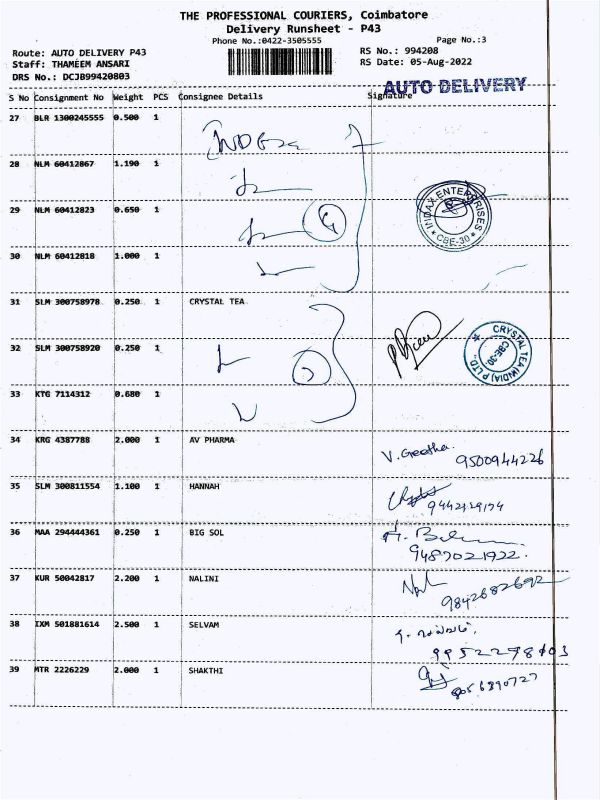 THE PROFESSIONAL COURIERS, Coimbatore
Delivery Runsheet - P43
Phone No.:0422-3505555
Page No.:3
Route: AUTO DELIVERY P43
RS No.: 994208
Staff: THAMEEM ANSARI
RS Date: 05-Aug-2022
DRS No.: DCJB99420803
AUTO DELIVERY
S No Consignment No Weight PCS Consignee Details Signature
27 BLR 1300245555 0.500 1
28 NLM 60412867 1.190 1
29 NLM 60412823 0.650 1
INDAX ENTERPRISES
* CBE-30 *
30 NLM 60412818 1.000 1
31 SLM 300758978 0.250 1 CRYSTAL TEA
CRYSTAL TEA (INDIA) P LTD.,
CBE-30.
32 SLM 300758920 0.250 1
33 KTG 7114312 0.680 1
34 KRG 4387788 2.000 1 AV PHARMA V. Geetha.
9500944226
35 SLM 300811554 1.100 1 HANNAH
9442129174
36 MAA 294444361 0.250 1 BIG SOL
9487021922.
37 KUR 50042817 2.200 1 NALINI
9842682692
38 IXM 501881614 2.500 1 SELVAM
9952278103
39 MTR 2226229 2.000 1 SHAKTHI
8056890727